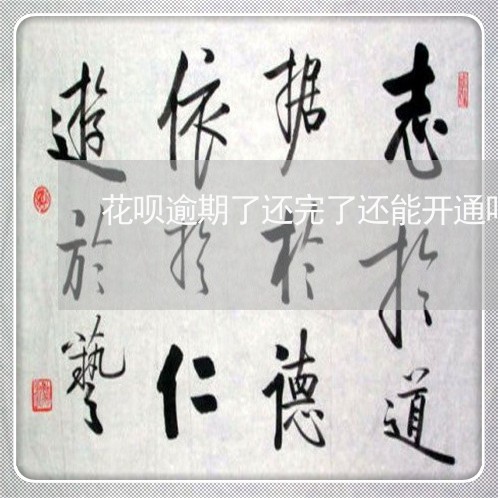 志於道
据於德
依於仁
遊於藝
花呗逾期了还完了还能开通吗